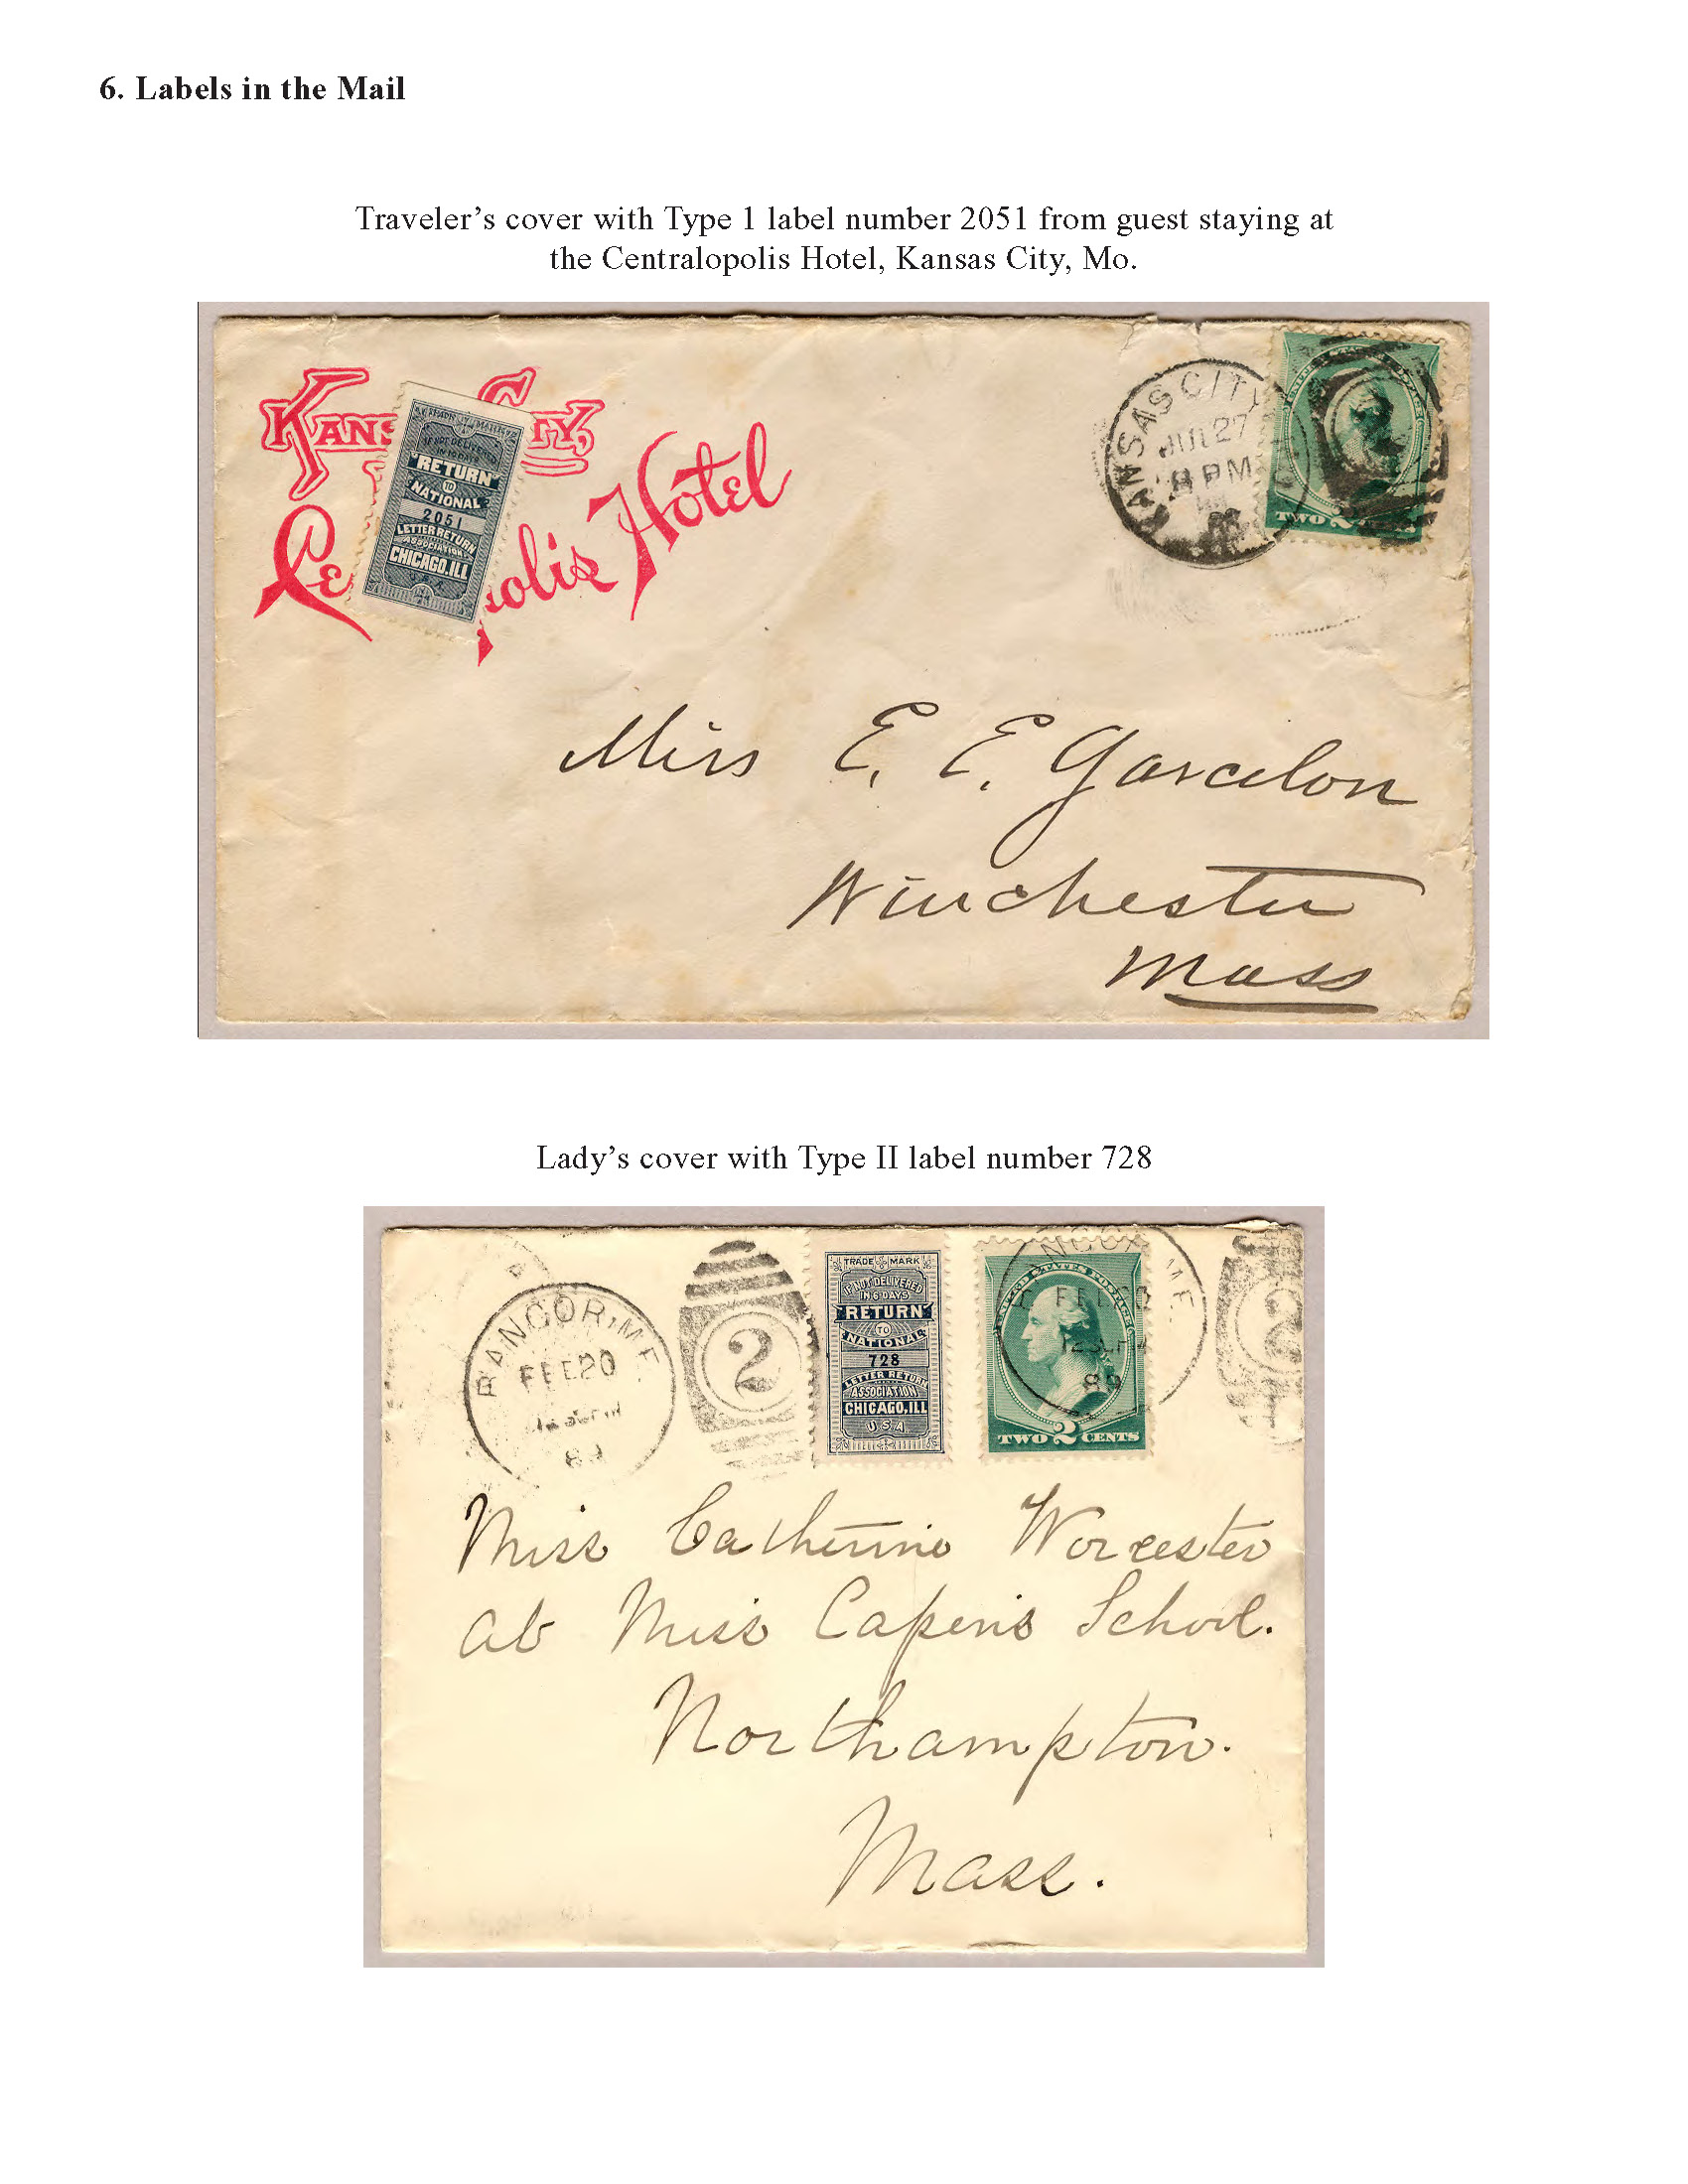 6. Labels in the Mail
Traveler's cover with Type 1 label number 2051 from guest staying at
the Centralopolis Hotel, Kansas City, Mo.
Kans City,
Ce polis Hotel
TRADE MARK
IF NOT DELIVERED
IN 10 DAYS
RETURN
TO
NATIONAL
2051
LETTER RETURN
ASSOCIATION
CHICAGO, ILL
U.S.A.
KANSAS CITY
JUL 27
8 PM
TWO
Miss E. E. Garcelon
Winchester
Mass
Lady's cover with Type II label number 728
BANGOR, ME
FEB 20
89
2
TRADE MARK
IF NOT DELIVERED
IN 6 DAYS
RETURN
TO
NATIONAL
728
LETTER RETURN
ASSOCIATION
CHICAGO, ILL
U S A
UNITED STATES POSTAGE
TWO 2 CENTS
NGOR, ME
FEB 20
89
2
Miss Catherine Worcester
at Miss Capen's School.
Northampton.
Mass.